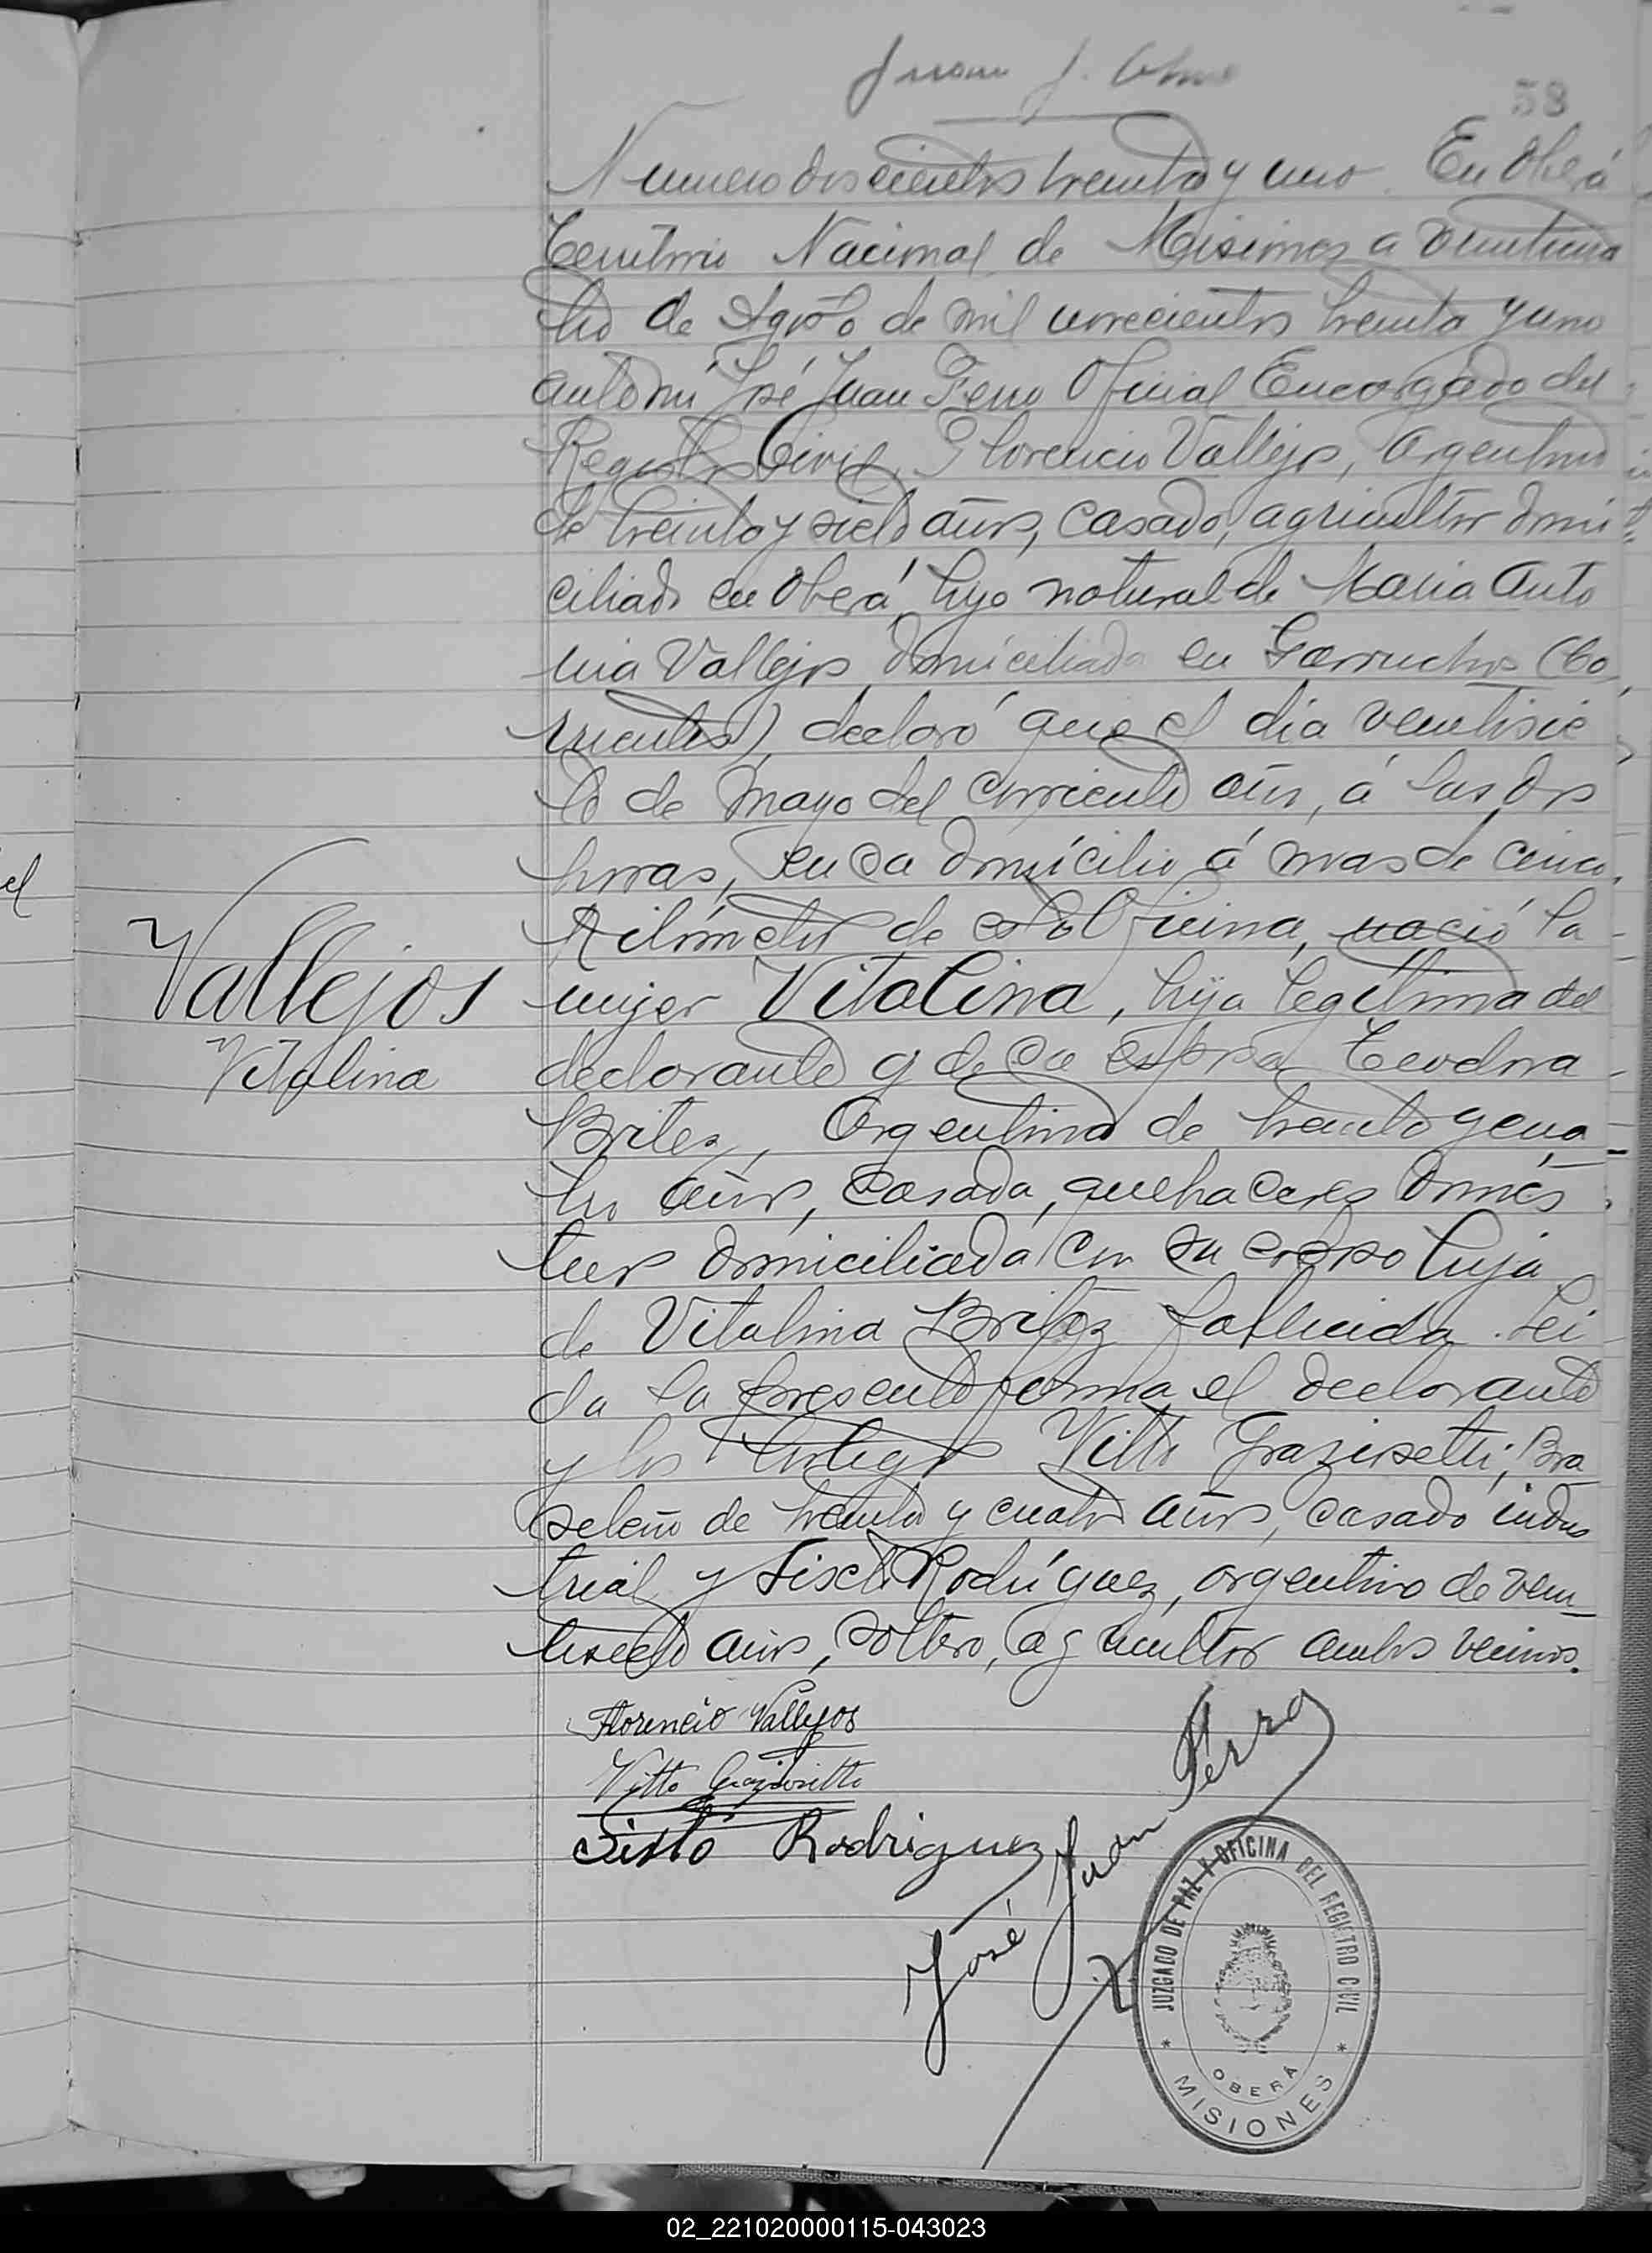 Juan J.
58
Numero doscientos treinta y uno. En Oberá
Territorio Nacional de Misiones a veinticua
tro de Agosto de mil novecientos treinta y uno
ante mí José Juan Ferro Oficial Encargado del
Registro Civil, Florencio Vallejos, Argentino
de treinta y siete años, casado, agricultor domi
ciliado en Oberá, hijo natural de Maria Anto
nia Vallejos domiciliada en Garruchos (Co
rrientes), declaró que el dia veintisie
te de Mayo del corriente año, á las dos
horas, en su domicilio á mas de cinco
Kilómetros de esta Oficina, nació la
mujer Vitalina, hija legítima del
Vallejos
Vitalina
declarante y de su esposa Teodora
Britez, Argentina de treinta y cua
tro años, casada, quehaceres domés
ticos domiciliada con su esposo hija
de Vitalina Britez fallecida. Lei
da la presente firma el declarante
y los testigos Vitto Graziosetti, Bra
seleño de treinta y cuatro años, casado indus
trial y Sisto Rodríguez, argentino de vein
tisiete años, soltero, agricultor ambos vecinos.
Florencio Vallejos
Vitto
Sisto Rodriguez
José Juan Ferro
JUZGADO DE PAZ Y OFICINA DEL REGISTRO CIVIL
OBERÁ
* MISIONES *
el
02_221020000115-043023